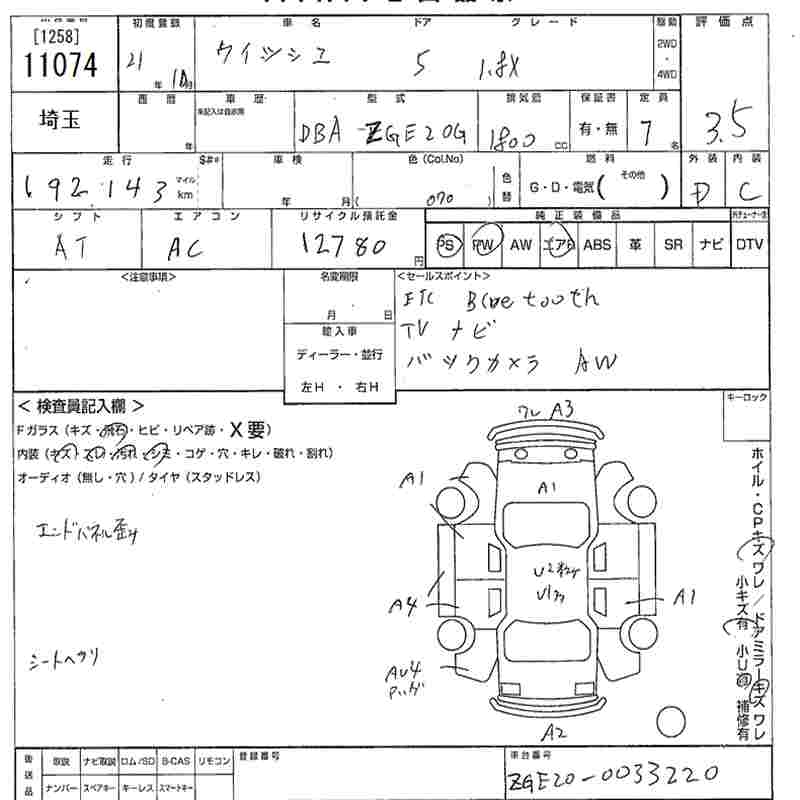 [1258]
11074
初度登録
21 年 10月
車名
ウイッシュ
ドア
5
グレード
1.8X
駆動
2WD
・
4WD
評価点
3.5
埼玉
西暦
年
車歴
未記入は自家用
型式
DBA-ZGE20G
排気量
1800 cc
保証書
有・無
定員
7 名
走行
192,143
マイル
km
$#*
車検
年 月
色(Col.No)
( 070 )
色替
燃料
G・D・電気( その他 )
外装
D
内装
C
シフト
AT
エアコン
AC
リサイクル預託金
12780 円
純正装備品
PS PW AW エアB ABS 革 SR ナビ DTV
<注意事項>
名変期限
月 日
輸入車
ディーラー・並行
左H ・ 右H
<セールスポイント>
ETC Bluetooth
TV ナビ
バックカメラ AW
キーロック
< 検査員記入欄 >
Fガラス (キズ・飛石・ヒビ・リペア跡・X要)
内装 (キズ・スレ・汚れ・シミ・コゲ・穴・キレ・破れ・割れ)
オーディオ (無し・穴) / タイヤ (スタッドレス)
エンドパネル歪み
シートヘタリ
ワレ A3
A1
A1
A4
A1
AU4
A2
ホイル・CPキズワレ/ドアミラーキズワレ
小キズ有 小U有 補修有
後送品
取説 ナビ取説 ロム/SD B-CAS リモコン
ナンバー スペアキー キーレス スマートキー
登録番号
車台番号
ZGE20-0033220